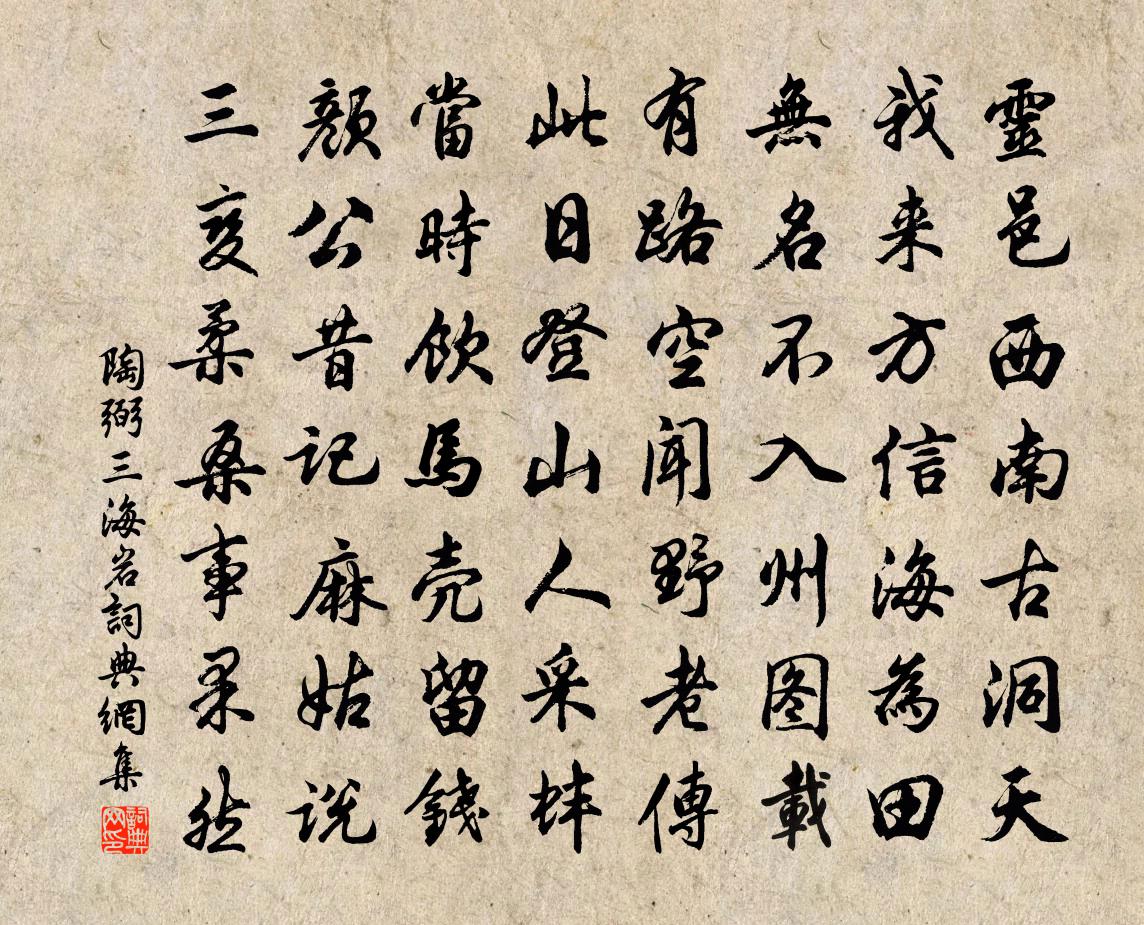 靈邑西南古洞天
我来方信海為田
無名不入州图載
有路空聞野老傳
此日登山人采蚌
當時飲馬壳留錢
顏公昔記麻姑説
三变柔桑事果然
陶弼三海岩詞典網集
詞典网印